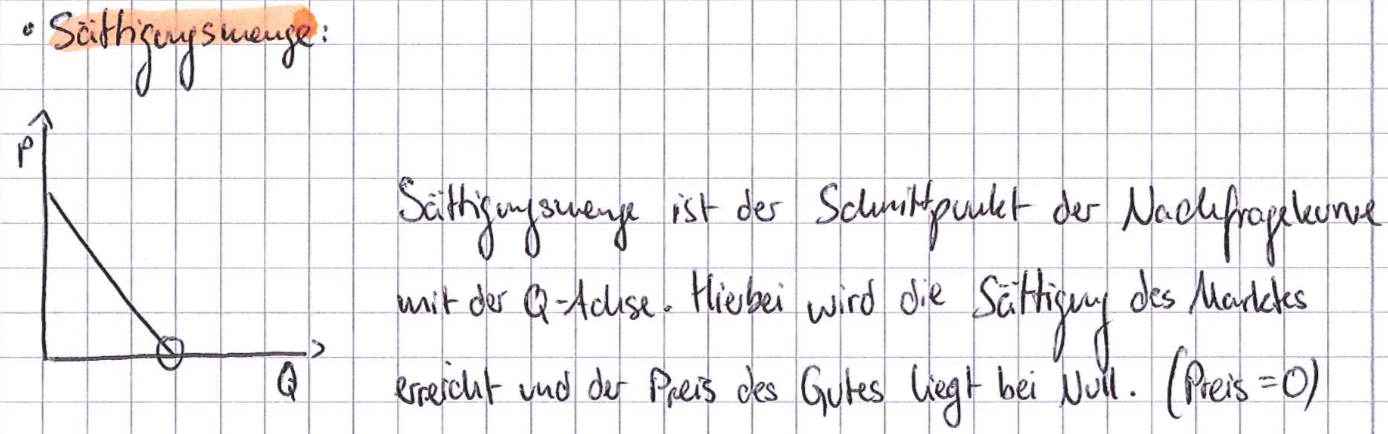 • Sättigungsmenge:
P
Sättigungsmenge ist der Schnittpunkt der Nachfragekurve
mit der Q-Achse. Hierbei wird die Sättigung des Marktes
erreicht und der Preis des Gutes liegt bei Null. (Preis=0)
Q